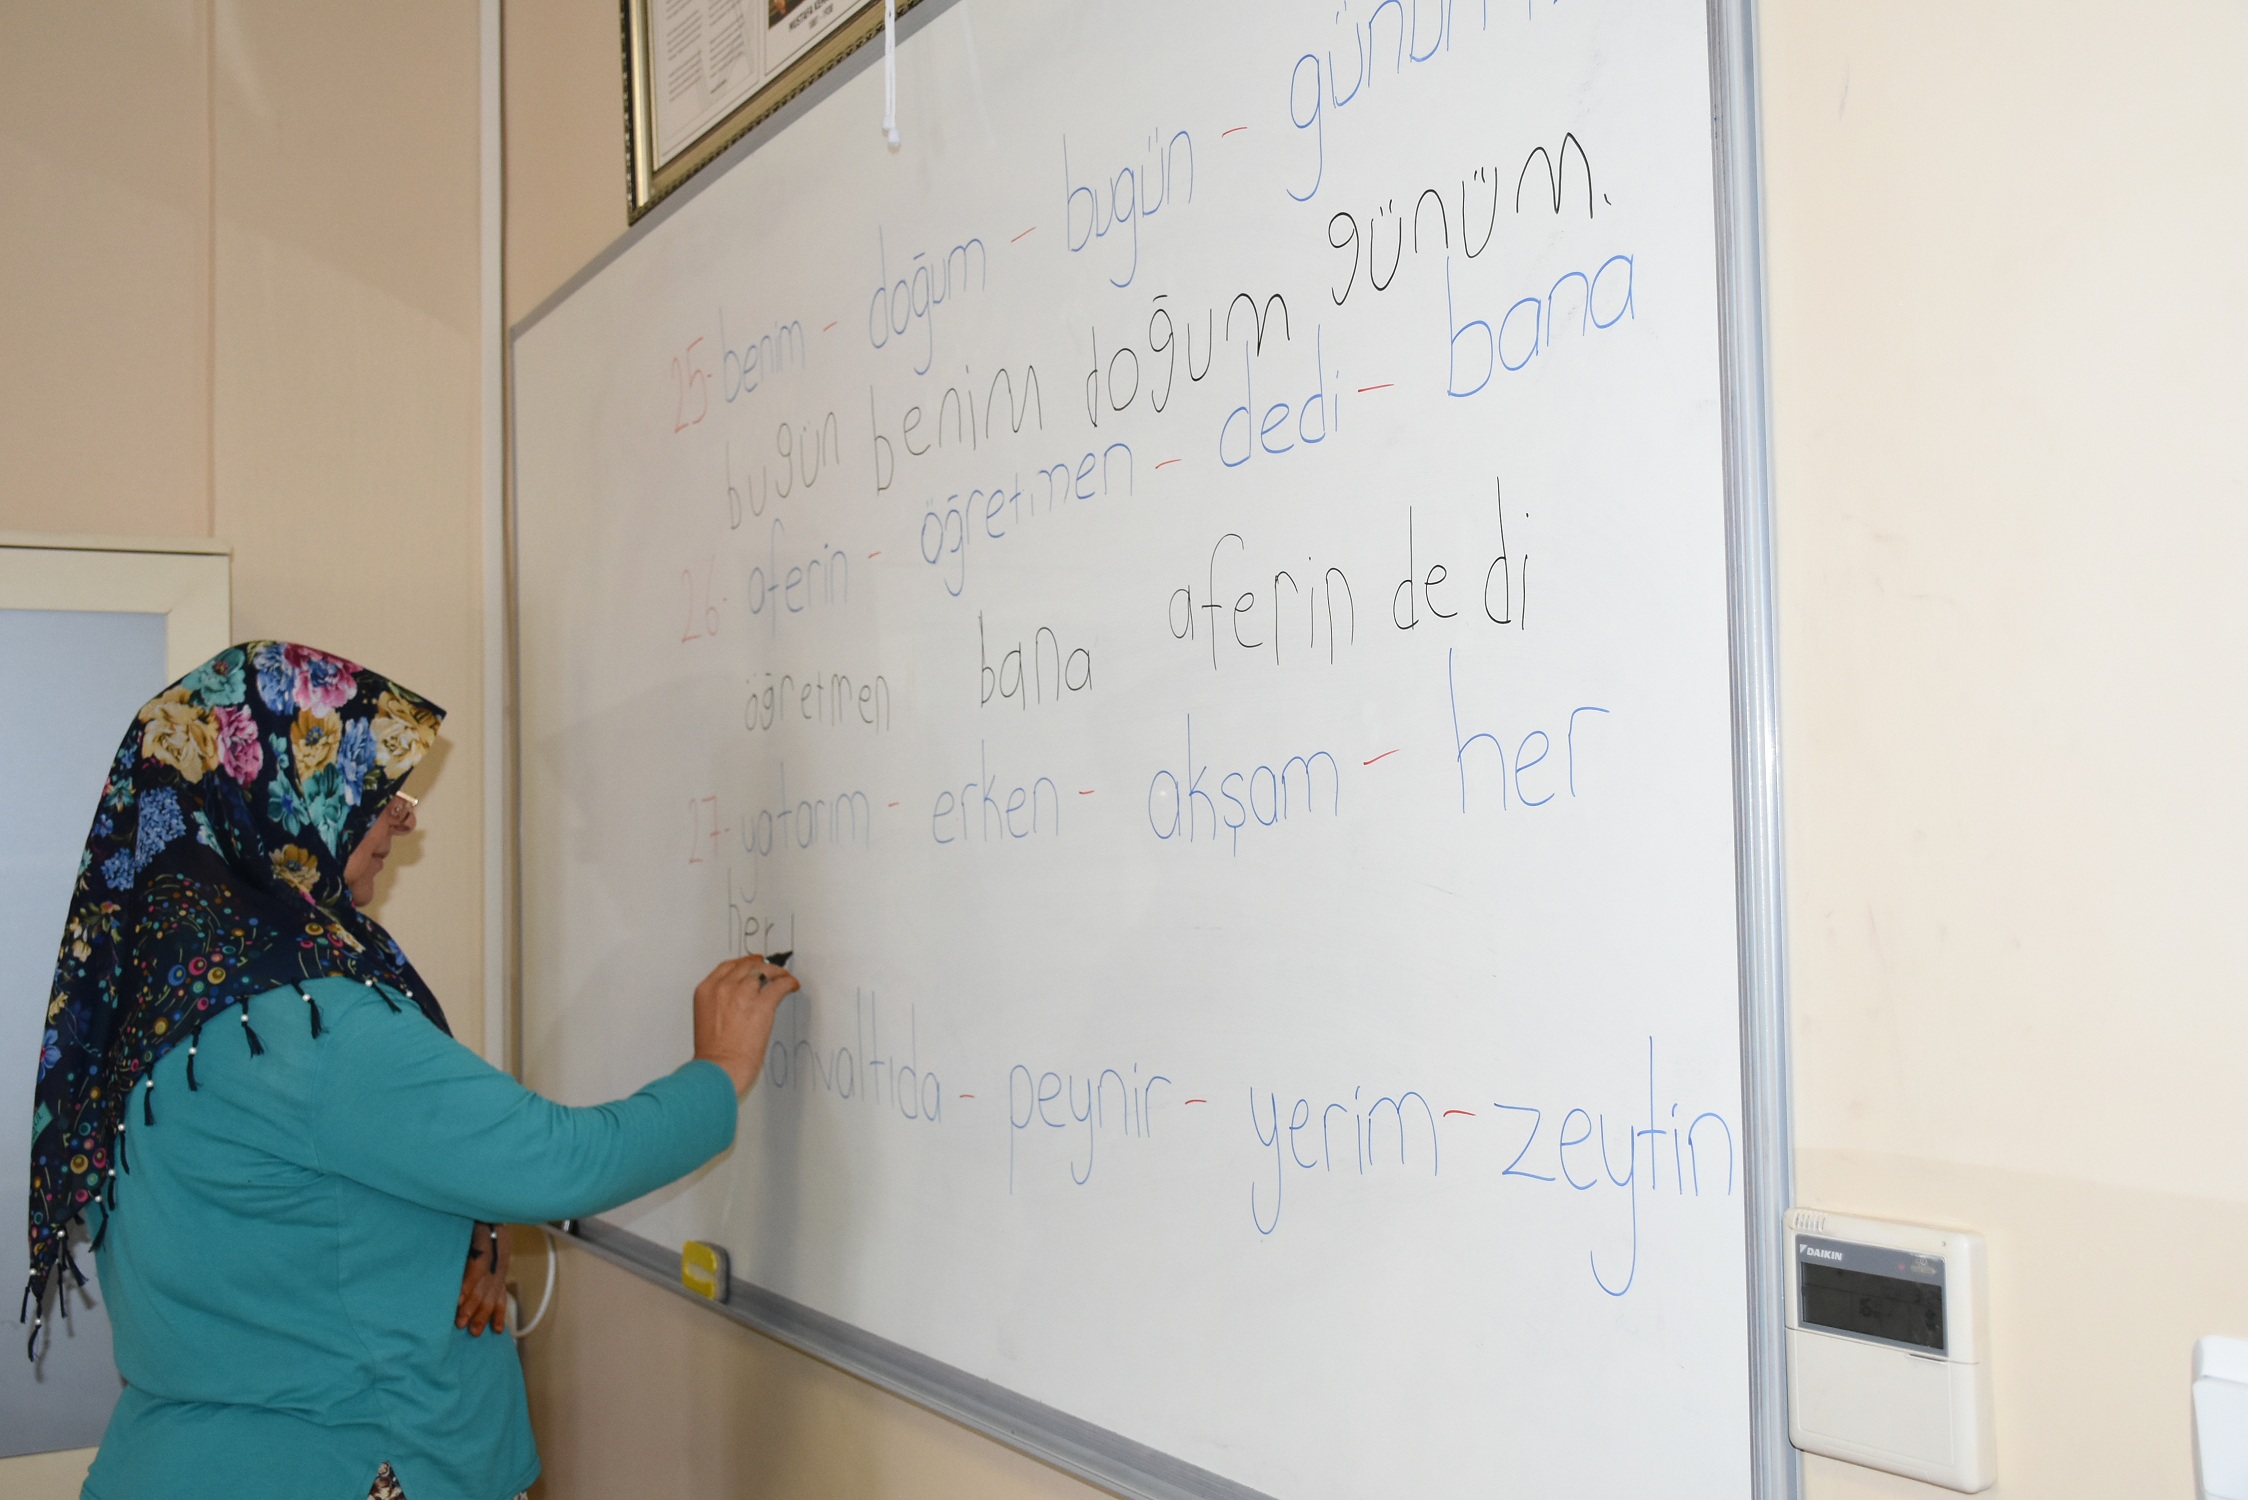 MUSTAFA KEMAL
1881 - 1938
25- benim - doğum - bugün -
bugün benim doğum günüm.
26- aferin - öğretmen - dedi - bana
öğretmen bana aferin dedi
27- yatarım - erken - akşam - her
her
peynir - yerim - zeytin
DAIKIN